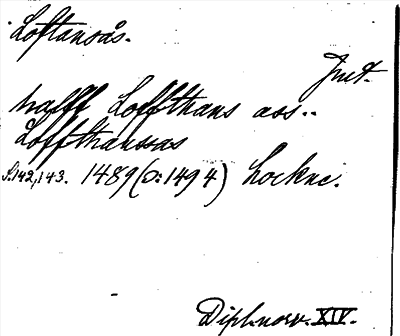 Loftansås.
Jmt.
haffl Loffthans aas..
Loffthanssas
S. 142, 143. 1489 (o: 1494) Lockne.
Dipl. norv. XIV.